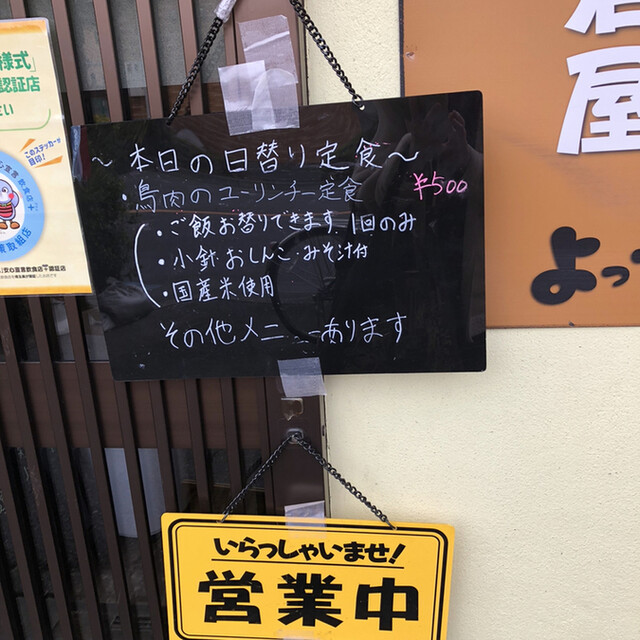 様式」
認証店
このステッカーが
目印!
～本日の日替り定食～
・鳥肉のユーリンチー定食 ¥500
・ご飯お替りできます 1回のみ
・小鉢・おしんこ・みそ汁付
・国産米使用
その他メニューあります
屋
よっ
いらっしゃいませ!
営業中